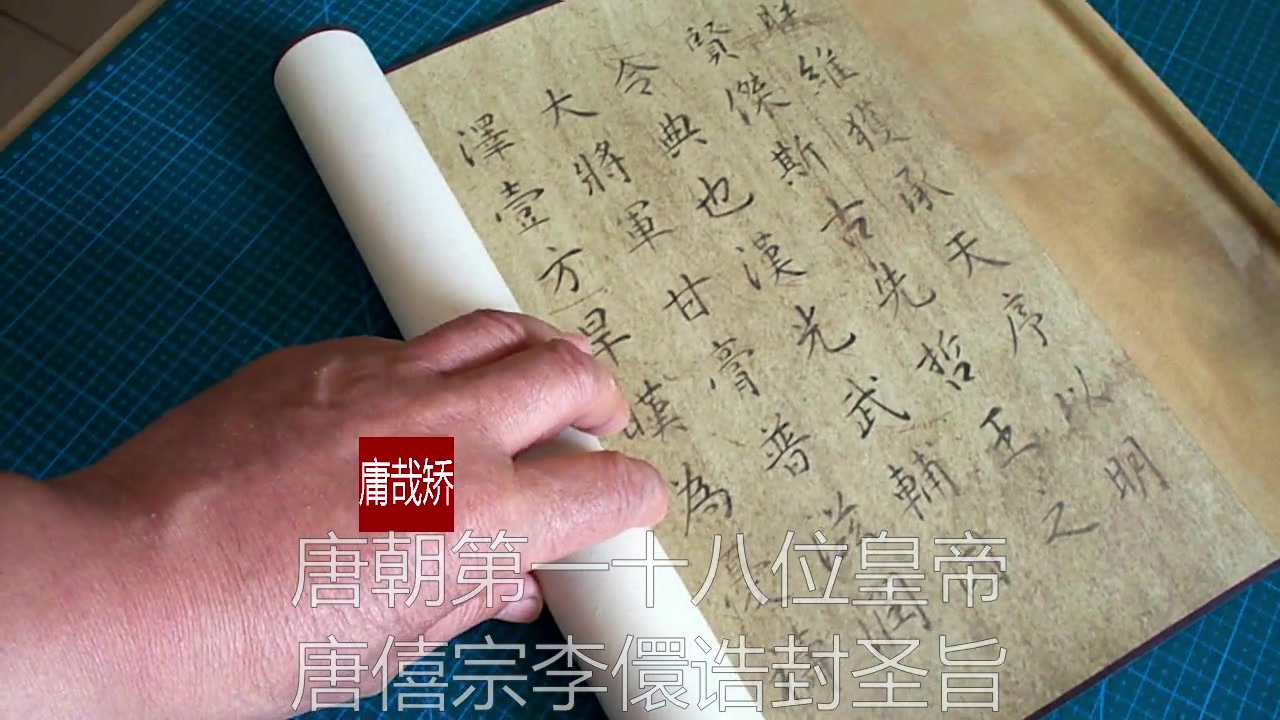 朕維獲承天序以明
賢傑斯古先哲王之
令典也漢光武輔
大將軍甘膏普
澤壹方旱嘆為
庸哉矫
唐朝第一十八位皇帝
唐僖宗李儇诰封圣旨